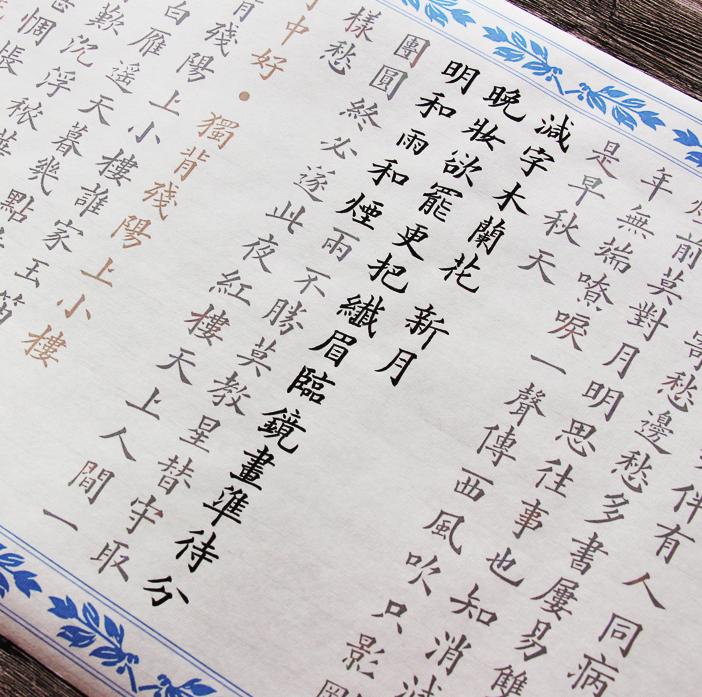 伴有人同病
愁邊愁多書屢易雙
前莫對月明思往事也知消減
年無端嘹唳一聲傳西風吹只影剛
是早秋天
減字木蘭花 新月
晚妝欲罷更把纖眉臨鏡畫準待分
明和雨和煙兩不勝莫教星替守取
團圓終必遂此夜紅樓天上人間一
樣愁
中好·獨背殘陽上小樓
背殘陽上小樓誰家玉笛
白雁遙天暮幾點
歎沉浮穠華
惆悵